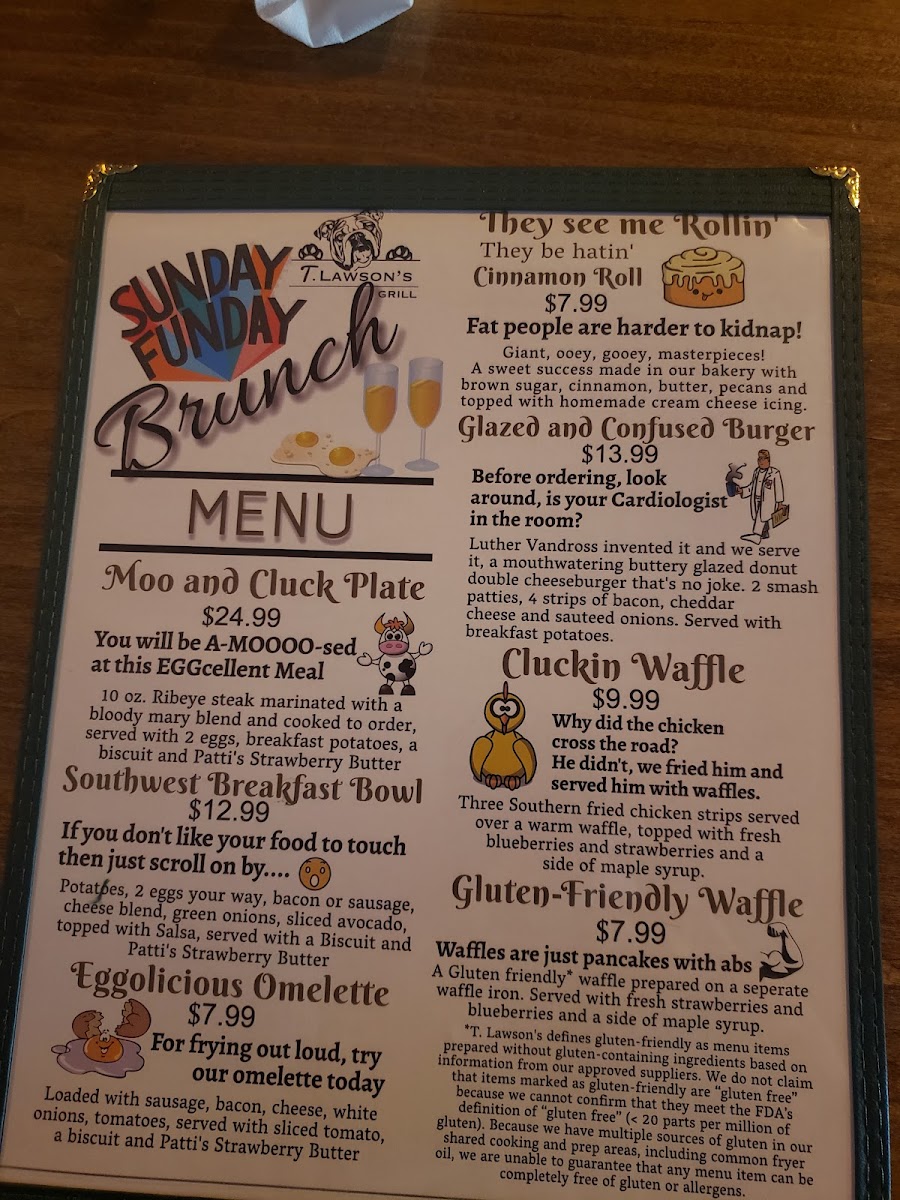 SUNDAY
FUNDAY
T.LAWSON'S
GRILL
Brunch
MENU
Moo and Cluck Plate
$24.99
You will be A-MOOOO-sed
at this EGGcellent Meal
10 oz. Ribeye steak marinated with a
bloody mary blend and cooked to order,
served with 2 eggs, breakfast potatoes, a
biscuit and Patti's Strawberry Butter
Southwest Breakfast Bowl
$12.99
If you don't like your food to touch
then just scroll on by....
Potatoes, 2 eggs your way, bacon or sausage,
cheese blend, green onions, sliced avocado,
topped with Salsa, served with a Biscuit and
Patti's Strawberry Butter
Eggolicious Omelette
$7.99
For frying out loud, try
our omelette today
Loaded with sausage, bacon, cheese, white
onions, tomatoes, served with sliced tomato,
a biscuit and Patti's Strawberry Butter
They see me Rollin'
They be hatin'
Cinnamon Roll
$7.99
Fat people are harder to kidnap!
Giant, ooey, gooey, masterpieces!
A sweet success made in our bakery with
brown sugar, cinnamon, butter, pecans and
topped with homemade cream cheese icing.
Glazed and Confused Burger
$13.99
Before ordering, look
around, is your Cardiologist
in the room?
Luther Vandross invented it and we serve
it, a mouthwatering buttery glazed donut
double cheeseburger that's no joke. 2 smash
patties, 4 strips of bacon, cheddar
cheese and sauteed onions. Served with
breakfast potatoes.
Cluckin Waffle
$9.99
Why did the chicken
cross the road?
He didn't, we fried him and
served him with waffles.
Three Southern fried chicken strips served
over a warm waffle, topped with fresh
blueberries and strawberries and a
side of maple syrup.
Gluten-Friendly Waffle
$7.99
Waffles are just pancakes with abs
A Gluten friendly* waffle prepared on a seperate
waffle iron. Served with fresh strawberries and
blueberries and a side of maple syrup.
*T. Lawson's defines gluten-friendly as menu items
prepared without gluten-containing ingredients based on
information from our approved suppliers. We do not claim
that items marked as gluten-friendly are "gluten free"
because we cannot confirm that they meet the FDA's
definition of "gluten free" (< 20 parts per million of
gluten). Because we have multiple sources of gluten in our
shared cooking and prep areas, including common fryer
oil, we are unable to guarantee that any menu item can be
completely free of gluten or allergens.